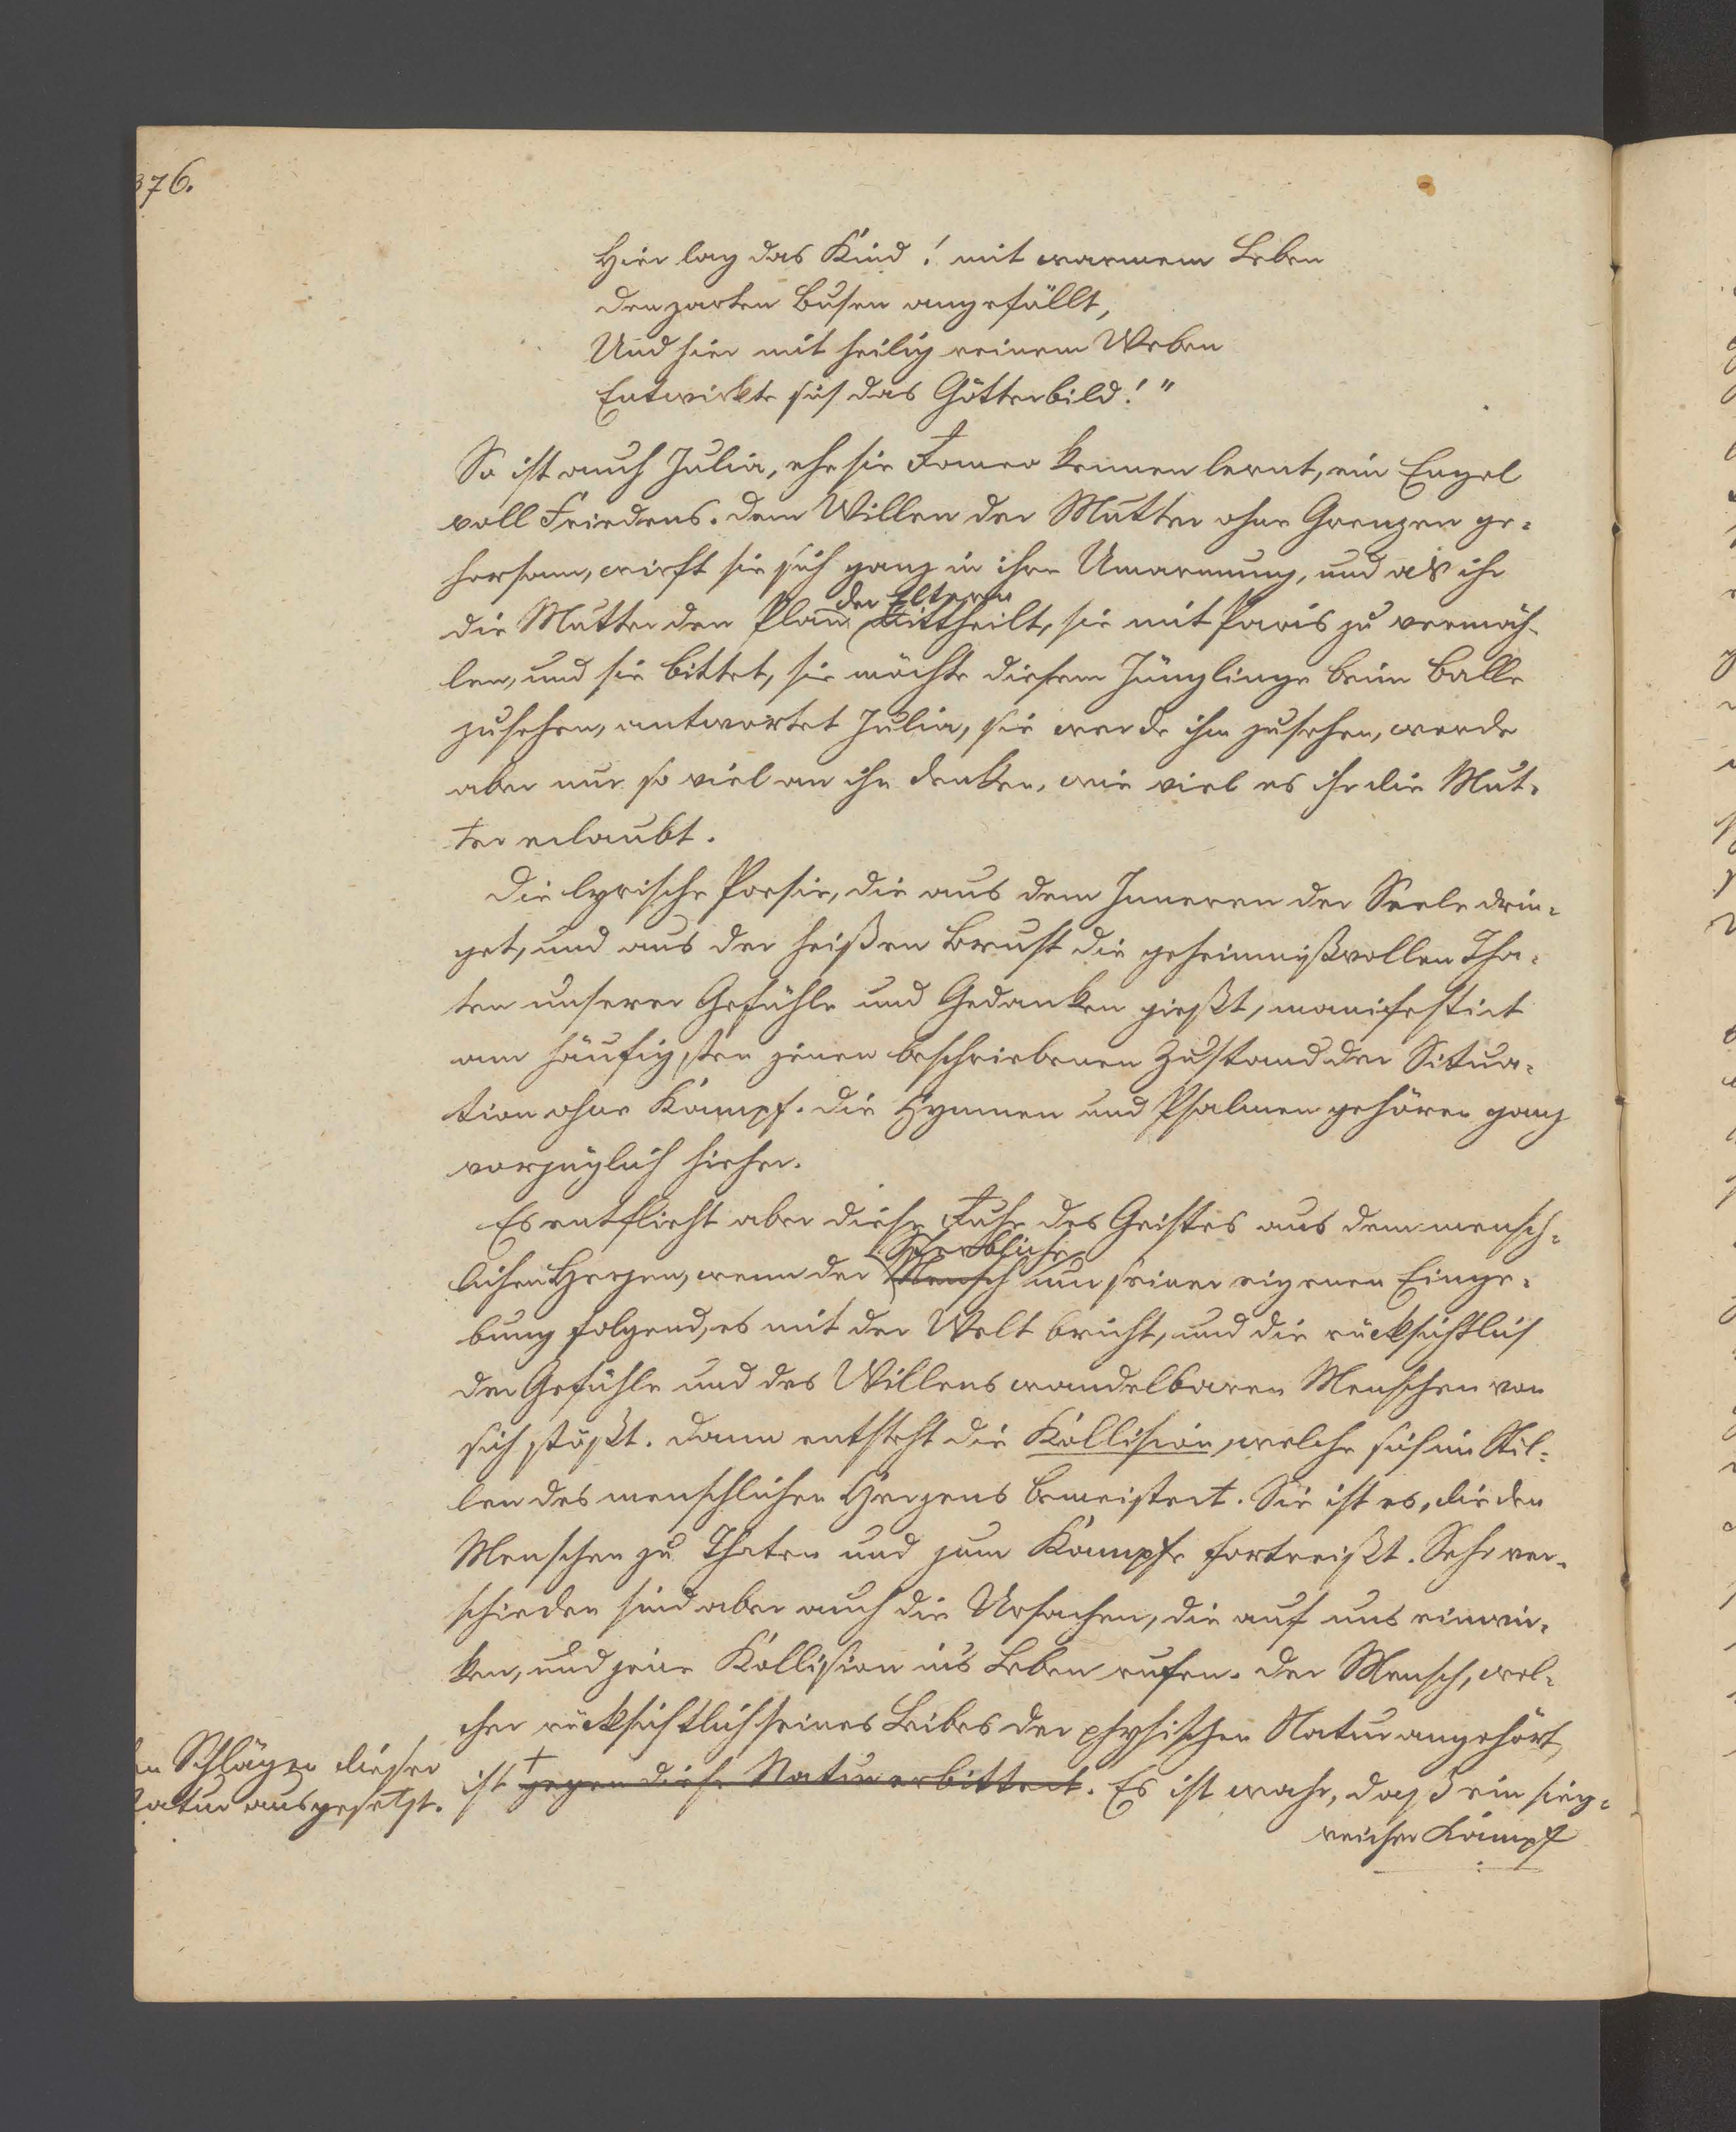 376.
Hier lag das Kind! mit warmem Leben
den zarten Busen angefüllt,
Und hier mit heilig reinem Weben
Entwirkte sich das Götterbild!"
So ist auch Julia, ehe sie Romeo kennen lernt, ein Engel
voll Friedens. Dem Willen der Mutter ohne Grenzen ge-
horsam, wirft sie sich ganz in ihre Umarmung, und als ihr
der Eltern
die Mutter den Plan mittheilt, sie mit Paris zu vermäh-
len, und sie bittet, sie möchte diesem Jünglinge beim Balle
zusehen, antwortet Julia, sie werde ihm zusehen, werde
aber nur so viel an ihn denken, wie viel es ihr die Mut-
ter erlaubt.
Die lyrische Poesie, die aus dem Inneren der Seele drin-
get, und aus der heißen Brust die geheimnißvollen Tha-
ten unserer Gefühle und Gedanken gießt, manifestirt
am häufigsten jenen beschriebenen Zustand der Situa-
tion ohne Kampf. Die Hymnen und Psalmen gehören ganz
vorzüglich hieher.
Es entflieht aber diese Ruhe des Geistes aus dem mensch-
Sterbliche
lichen Herzen, wenn der Mensch nun seiner eigenen Einge-
bung folgend, es mit der Welt bricht, und die rücksichtlich
der Gefühle und des Willens wandelbaren Menschen von
sich stößt. Dann entsteht die Kollision, welche sich im Stil-
len des menschlichen Herzens bemeistert. Sie ist es, die den
Menschen zu Thaten und zum Kampfe fortreißt. Sehr ver-
schieden sind aber auch die Ursachen, die auf uns einwir-
ken, und jene Kollision in's Leben rufen. Der Mensch, wel-
cher rücksichtlich seines Leibes der physischen Natur angehört,
ist † gegen diese Natur erbittert. Es ist wahr, daß ein sieg-
reicher Kampf
en Schlägen dieser
Natur ausgesetzt.